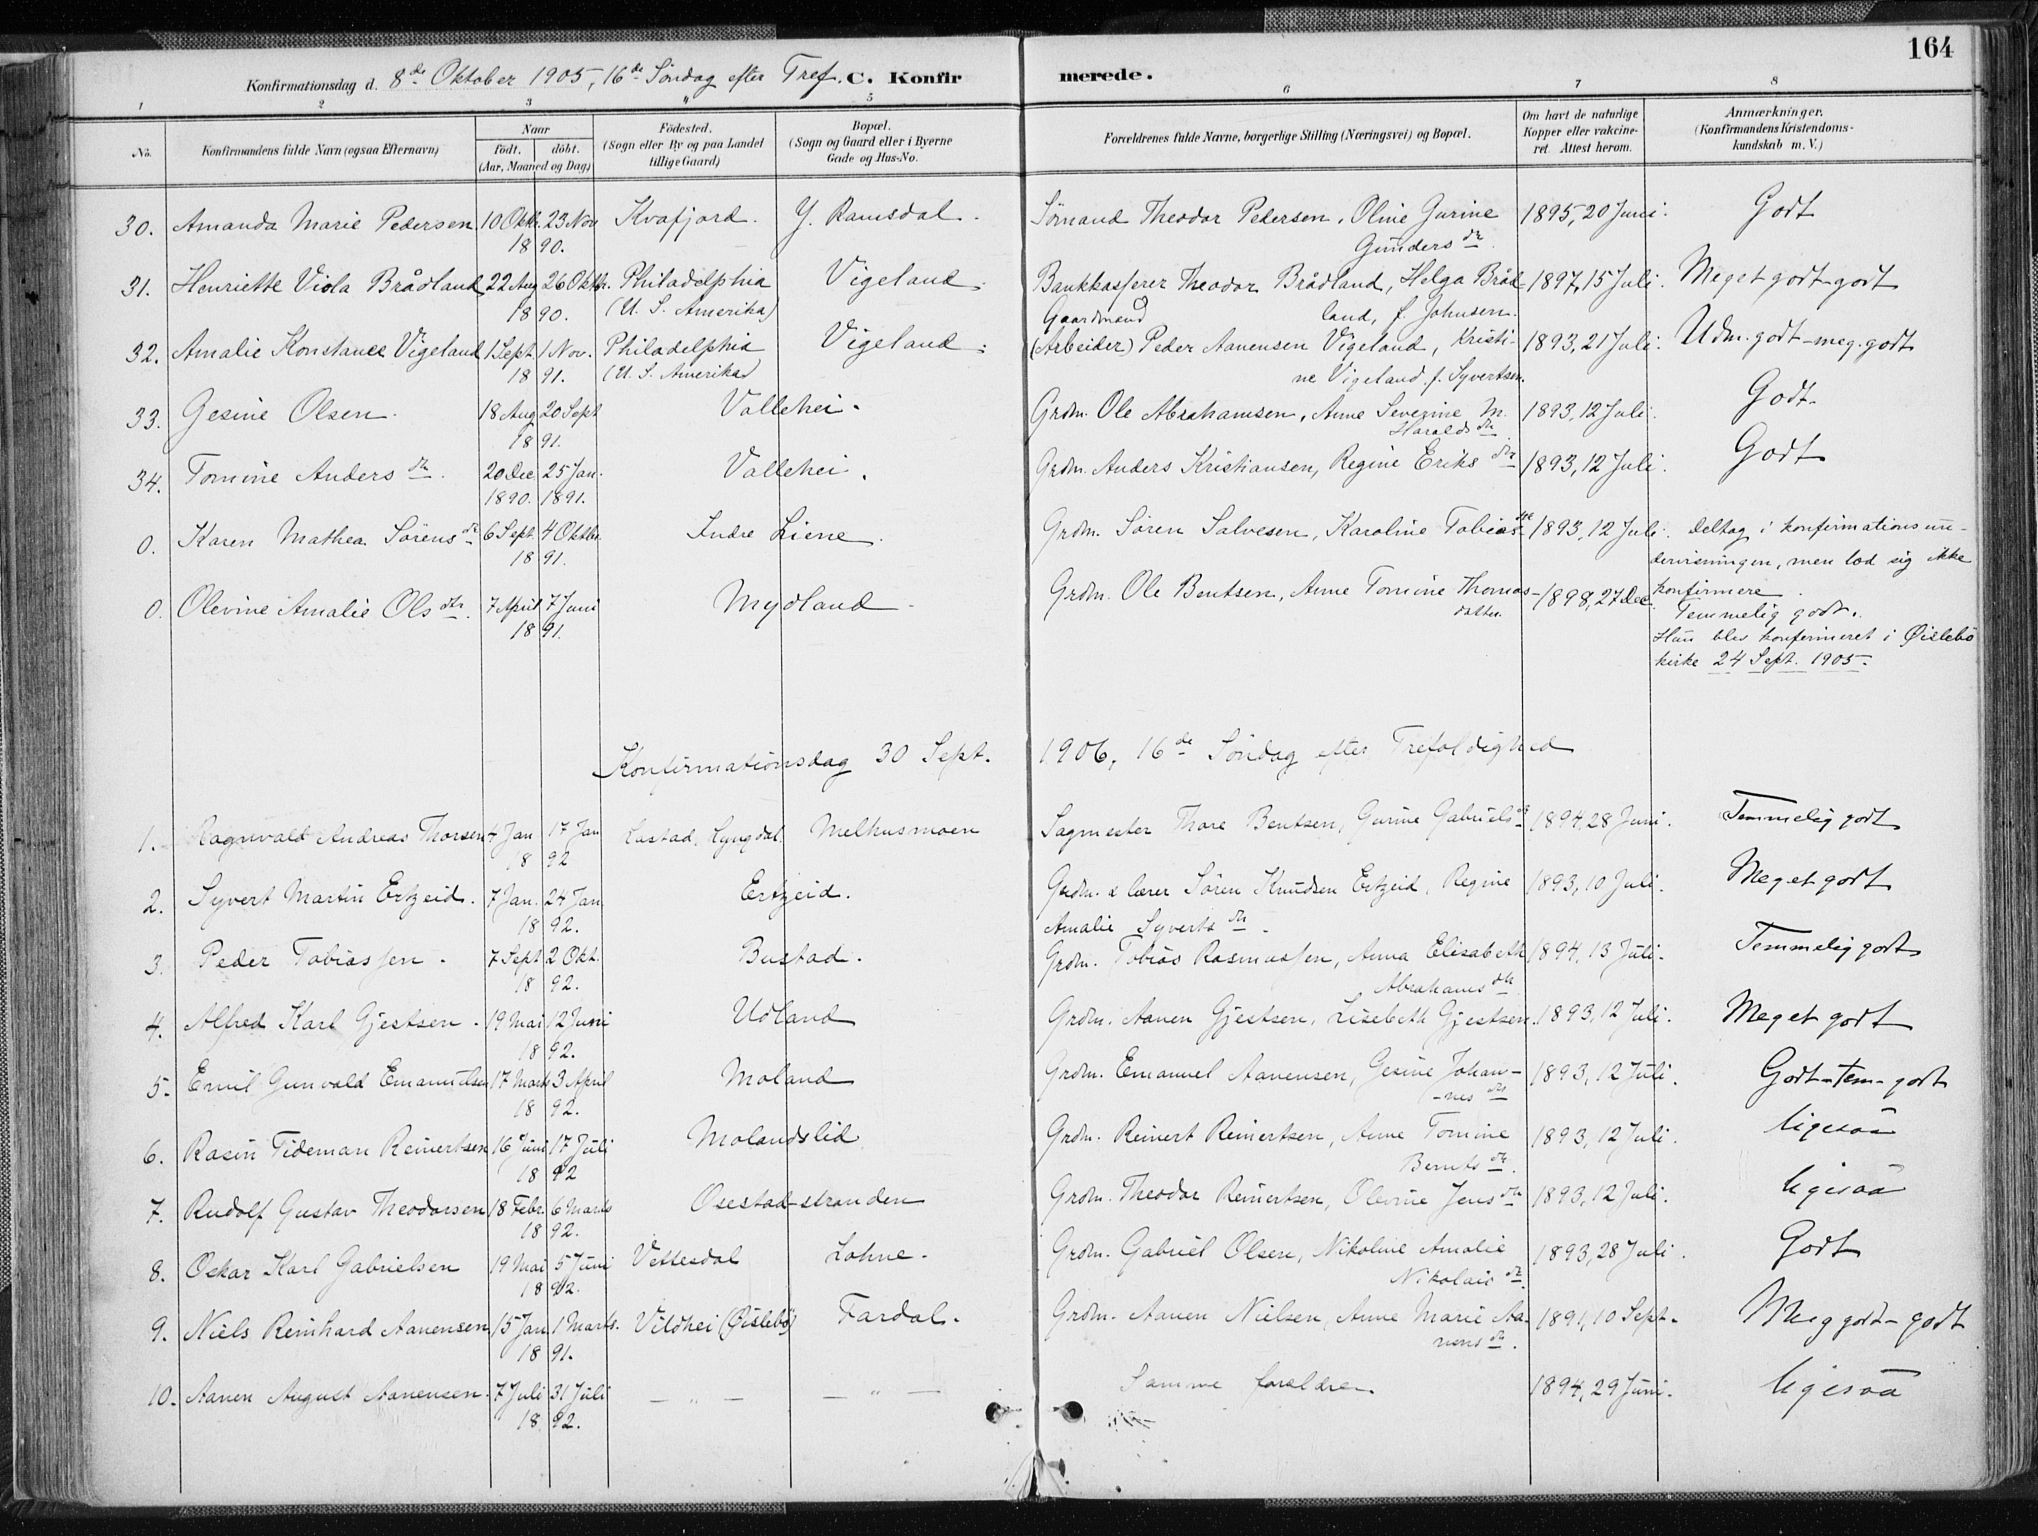 164
Konfirmationsdag d. 8de Oktober 1905, 16de Söndag efter Tref. C. Konfirmerede.
1 2 3 4 5 6 7 8
No. Konfirmandens fulde Navn (ogsaa Efternavn) Naar födt. döbt. (Aar, Maaned og Dag) Födested. (Sogn eller By og paa Landet tillige Gaard) Bopæl. (Sogn og Gaard eller i Byerne Gade og Hus-No. Forældrenes fulde Navne, borgerlige Stilling (Næringsvei) og Bopæl. Om havt de naturlige Kopper eller vakcineret. Attest herom. Anmærkninger. (Konfirmandens Kristendomskundskab m. V.)
30. Amanda Marie Pedersen 10 Oktb. 23 Nov Kvafjord. Y. Ramsdal. Sörnand Theodor Pedersen, Oline Gurine 1895, 20 Juni. Godt
18 90. Gunders dr.
31. Henriette Viola Brådland 22 Aug 26 Oktb. Philadelphia Vigeland. Bankkasserer Theodor Brådland, Helga Bråd- 1897, 15 Juli. Meget godt-godt
18 90. (U. S. Amerika) Gaardmand land, f. Johnsen.
32. Amalie Konstance Vigeland 1 Sept 1 Nov. Philadelphia Vigeland. (Arbeider) Peder Aanensen Vigeland, Kristi- 1893, 21 Juli. Udm. godt-meg. godt
18 91. (U. S. Amerika) ne Vigeland f. Syvertsen.
33. Gesine Olsen. 18 Aug 20 Sept Vallehei. Grdm. Ole Abrahamsen, Anne Severine M. 1893, 12 Juli. Godt.
18 91. Haralds dr.
34. Tomine Anders dr. 20 Dec 25 Jan. Vallehei. Grdm. Anders Kristiansen, Regine Eriks dr 1893, 12 Juli. Godt
1890. 1891.
0. Karen Mathea Sörens dr 6 Sept. 4 Oktbr. Indre Liene. Grdm. Sören Salvesen, Karoline Tobias dtr 1893, 12 Juli. Deltog i konfirmationsun-
18 91. dervisningen, men lod sig ikke
0. Olevine Amalie Ols dtr. 7 April 7 Juni Mydland. Grdm. Ole Bentsen, Anne Tomine Thomas- 1898, 27 Dec. konfirmere.
18 91. datter. Temmelig godt.
Hun blev konfirmeret i Öislebö
kirke 24 Sept. 1905.
Konfirmationsdag 30 Sept. 1906, 16de Söndag efter Trefoldighed
1. Ragnvald Andreas Thorsen 4 Jan 17 Jan Lyngdal. Melhusmoen Sagmester Thore Bentsen, Gurine Gabriels dr 1894, 28 Juni. Temmelig godt
18 92
2. Syvert Martin Ertzeid. 7 Jan. 24 Jan Ertzeid. Grdm. & lærer Sören Knudsen Ertzeid, Regine 1893, 10 Juli. Meget godt
18 92. Amalie Syverts dr.
3. Peder Tobiassen. 7 Sept 2 Okt. Bustad. Grdm. Tobias Rasmussen, Anna Elisabeth 1894, 13 Juli. Temmelig godt
18 92. Abrahams dr
4. Alfred Karl Gjestsen. 19 Mai 12 Juni Udland Grdm. Aanen Gjestsen, Lisebeth Gjestsen. 1893, 12 Juli. Meget godt
18 92.
5. Emil Gunvald Emanuelsen 17 Marts 3 April Moland Grdm. Emanuel Aanensen, Gesine Johan- 1893, 12 Juli. Godt-tem-godt
18 92. -nes dr
6. Rasin Tideman Reinertsen 16 Juni 17 Juli Molandslid Grdm. Reinert Reinertsen, Anne Tomine 1893, 12 Juli. ligesaa
18 92 Bernts dr.
7. Rudolf Gustav Theodorsen 18 Febr. 6 Marts Osestad-stranden Grdm. Theodor Reinertsen, Olevine Jens dr 1893, 12 Juli. ligesaa
18 92.
8. Oskar Karl Gabrielsen 19 Mai 5 Juni Vettesdal Lohne. Grdm. Gabriel Olsen, Nikoline Amalie 1893, 28 Juli. Godt
18 92. Nikolais dr.
9. Niels Reinhard Aanensen 15 Jan 1 Marts. Vildhei (Öislebö) Fardal. Grdm. Aanen Nielsen, Anne Marie Aa- 1891, 10 Sept. Meg godt-godt
18 91. nens dr.
10. Aanen August Aanensen. 7 Juli 31 Juli — „ — — „ — Samme forældre. 1894, 29 Juni. ligesaa
18 92.